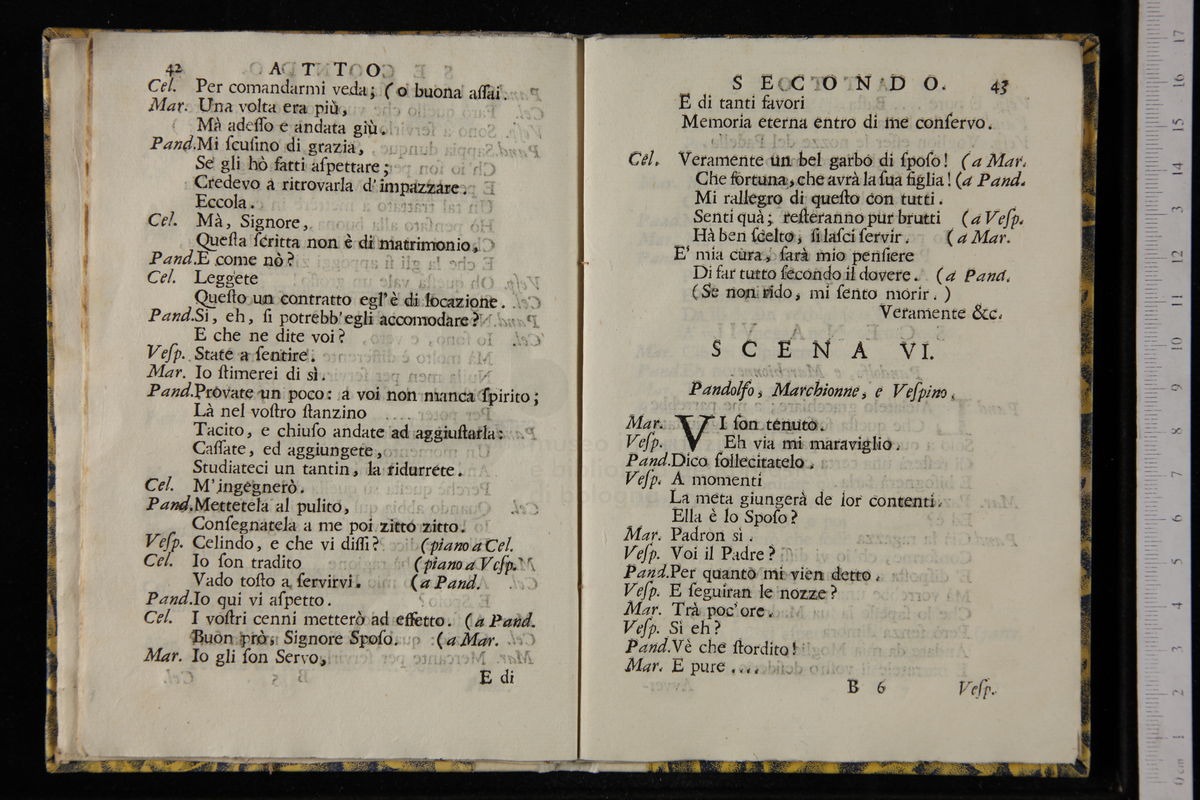 42 ATTO
Cel. Per comandarmi veda; (o buona aſſai.
Mar. Una volta era più,
Mà adeſſo e andata giù.
Pand. Mi ſcuſino di grazia,
Se gli hò fatti aſpettare;
Credevo a ritrovarla d'impazzare.
Eccola.
Cel. Mà, Signore,
Queſta ſcritta non è di matrimonio,
Pand. E come nò?
Cel. Leggete
Queſto un contratto egl'è di locazione.
Pand. Si, eh, ſi potrebb'egli accomodare?
E che ne dite voi?
Veſp. State a ſentire.
Mar. Io ſtimerei di sì.
Pand. Provate un poco: a voi non manca ſpirito;
Là nel voſtro ſtanzino
Tacito, e chiuſo andate ad aggiuſtarla:
Caſſate, ed aggiungete,
Studiateci un tantin, la ridurrete.
Cel. M'ingegnerò.
Pand. Mettetela al pulito,
Conſegnatela a me poi zitto zitto.
Veſp. Celindo, e che vi diſſi? (piano a Cel.
Cel. Io ſon tradito (piano a Veſp.
Vado toſto a ſervirvi. (a Pand.
Pand. Io qui vi aſpetto.
Cel. I voſtri cenni metterò ad effetto. (a Pand.
Buon prò, Signore Spoſo. (a Mar.
Mar. Io gli ſon Servo,
E di
SECONDO. 43
E di tanti favori
Memoria eterna entro di me conſervo.
Cel. Veramente un bel garbo di ſpoſo! (a Mar.
Che fortuna, che avrà la ſua figlia! (a Pand.
Mi rallegro di queſto con tutti.
Senti quà; reſteranno pur brutti (a Veſp.
Hà ben ſcelto, ſi laſci ſervir. (a Mar.
E' mia cura, ſarà mio penſiere
Di far tutto ſecondo il dovere. (a Pand.
(Se non rido, mi ſento morir.)
Veramente &c.
SCENA VI.
Pandolfo, Marchionne, e Veſpino.
Mar. VI ſon tenuto.
Veſp. Eh via mi maraviglio.
Pand. Dico ſollecitatelo.
Veſp. A momenti
La meta giungerà de lor contenti.
Ella è lo Spoſo?
Mar. Padron sì.
Veſp. Voi il Padre?
Pand. Per quanto mi vien detto.
Veſp. E ſeguiran le nozze?
Mar. Trà poc'ore.
Veſp. Sì eh?
Pand. Vè che ſtordito!
Mar. E pure....
B 6 Veſp.